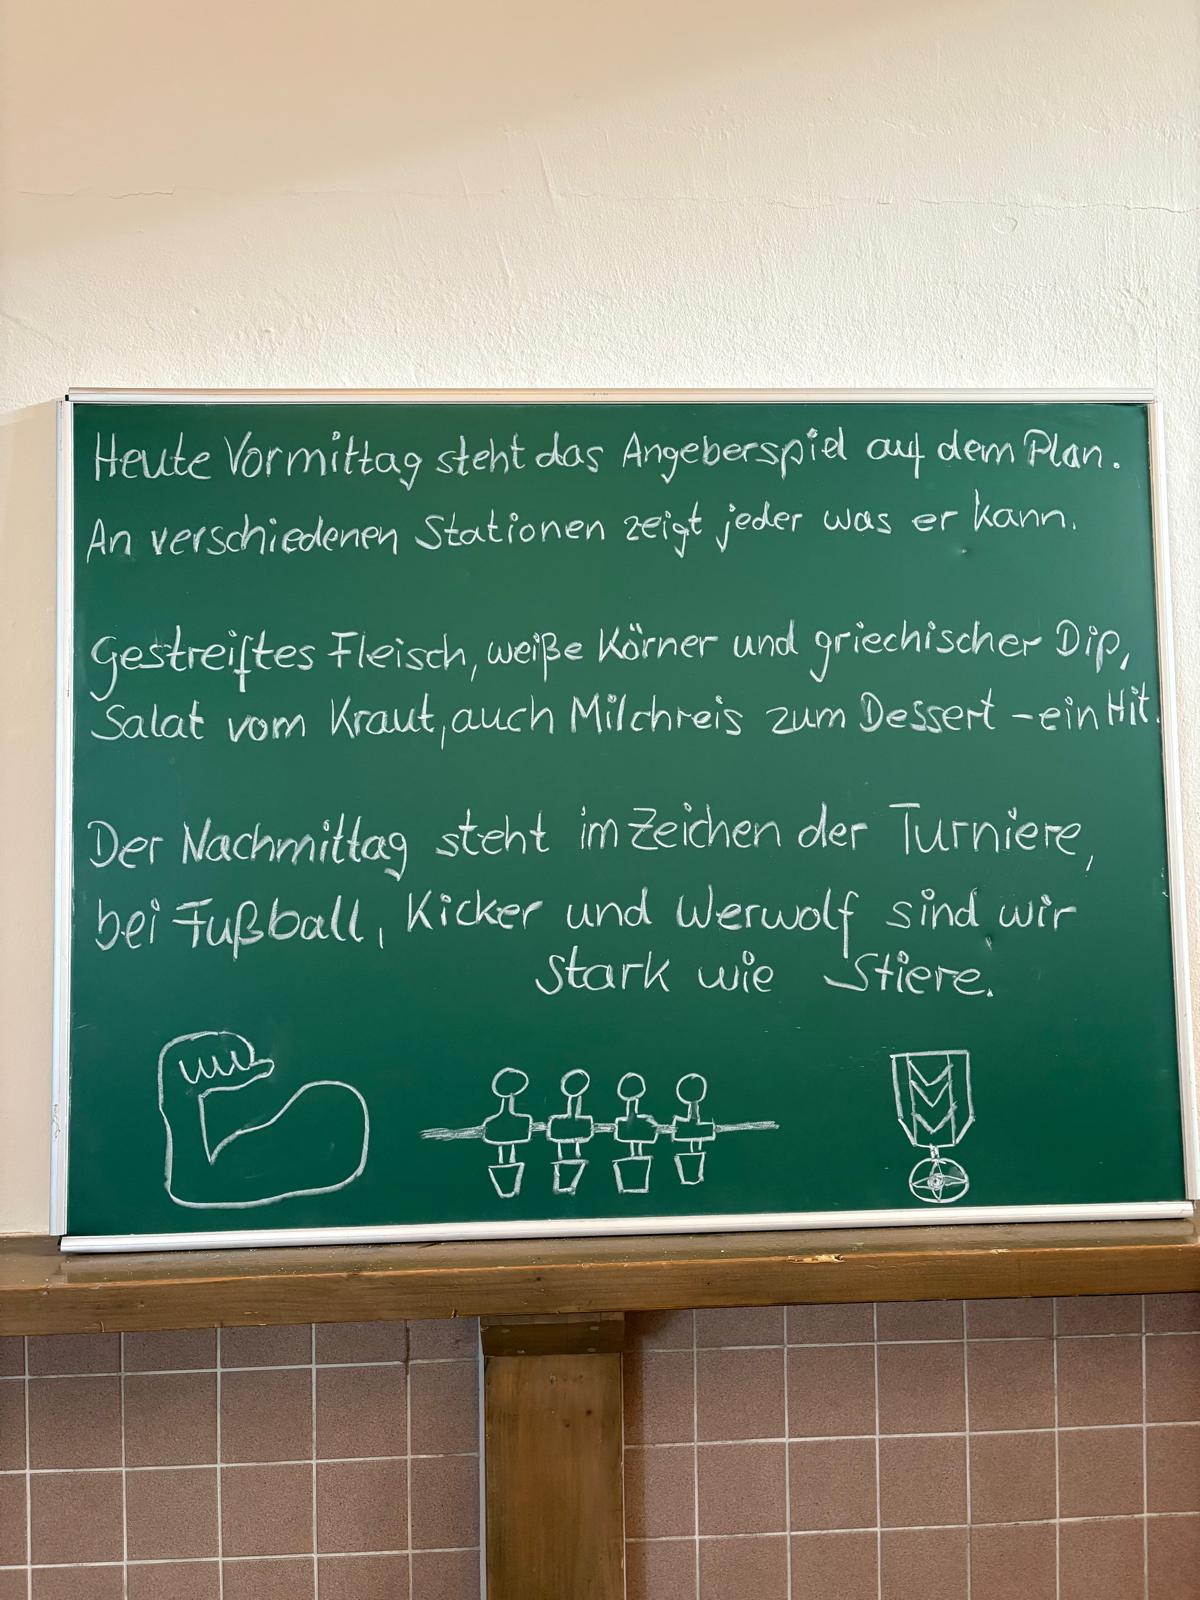 Heute Vormittag steht das Angeberspiel auf dem Plan.
An verschiedenen Stationen zeigt jeder was er kann.
Gestreiftes Fleisch, weiße Körner und griechischer Dip,
Salat vom Kraut, auch Milchreis zum Dessert – ein Hit.
Der Nachmittag steht im Zeichen der Turniere,
bei Fußball, Kicker und Werwolf sind wir
stark wie Stiere.